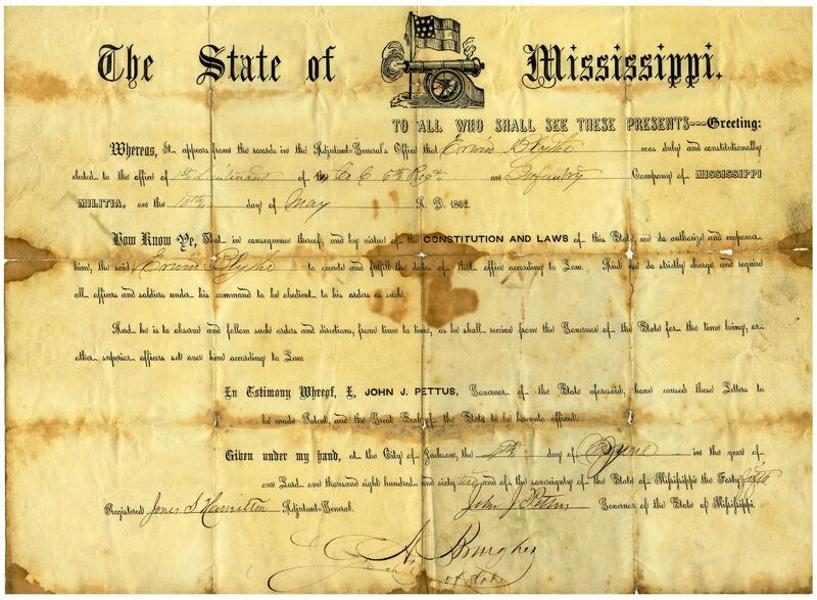 The State of Mississippi.
TO ALL WHO SHALL SEE THESE PRESENTS---Greeting:
Whereas, It appears from the records in the Adjutant-General's Office that Erwin Blythe was duly and constitutionally
elected to the office of 1st Lieutenant of Co C 6th Regt. an Infantry Company of MISSISSIPPI
MILITIA, on the 10th day of May A. D. 1862.
Now Know Ye, That in consequence thereof, and by virtue of the CONSTITUTION AND LAWS of this State, we do authorize and empower
him, the said Erwin Blythe to execute and fulfill the duties of that office according to Law. And we do strictly charge and require
all officers and soldiers under his command to be obedient to his orders as such.
And he is to observe and follow such orders and directions, from time to time, as he shall receive from the Governor of the State for the time being, or
other superior officers set over him according to Law.
In Testimony Whereof, I, JOHN J. PETTUS, Governor of the State aforesaid, have caused these Letters to
be made Patent, and the Great Seal of the State to be hereunto affixed.
Given under my hand, at the City of Jackson, the day of in the year of
our Lord one thousand eight hundred and sixty and of the sovereignty of the State of Mississippi the Forty
Registered Jones S. Hamilton Adjutant-General. John J Pettus Governor of the State of Mississippi.
A Brougher
of State